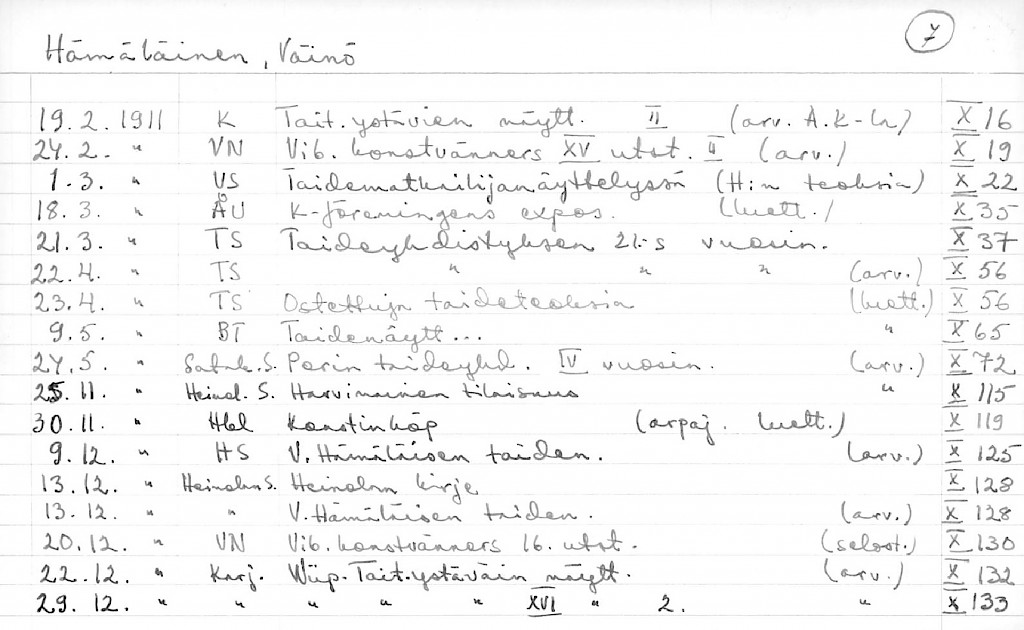 7
Hämäläinen, Väinö
19.2.1911 K Tait.ystävien näytt. II (arv. A.K-ln) X 16
24.2. " VN Vib. konstvänners XV utst. II (arv.) X 19
1.3. " US Taidematkailijanäyttelyssä (H:n teoksia) X 22
18.3. " ÅU K-föreningens expos. (luett.) X 35
21.3. " TS Taideyhdistyksen 21:s vuosin. X 37
22.4. " TS " " " (arv.) X 56
23.4. " TS Ostettuja taideteoksia (luett.) X 56
9.5. " BT Taidenäytt... " X 65
24.5. " Satak.S. Porin taideyhd. IV vuosin. (arv.) X 72
25.11. " Heinol.S. Harvinainen tilaisuus " X 115
30.11. " Hbl Konstinköp (arpaj. luett.) X 119
9.12. " HS V.Hämäläisen taiden. (arv.) X 125
13.12. " Heinolan S. Heinolan kirje X 128
13.12. " " V.Hämäläisen taiden. (arv.) X 128
20.12. " VN Vib.konstvänners 16. utst. (selost.) X 130
22.12. " Karj. Wiip.Tait.ystäväin näytt. (arv.) X 132
29.12. " " " " " XVI " 2. " X 133